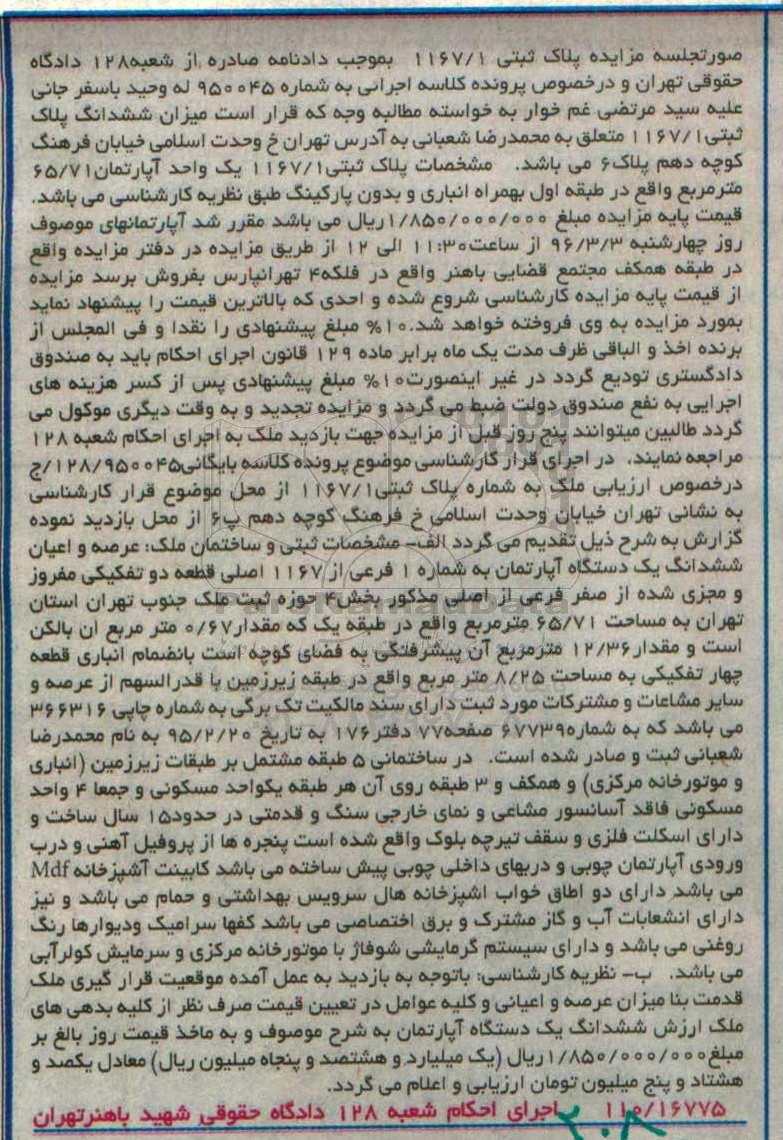 صورتجلسه مزایده پلاک ثبتی ۱۱۶۷/۱ بموجب دادنامه صادره از شعبه۱۲۸ دادگاه
حقوقی تهران و درخصوص پرونده کلاسه اجرائی به شماره ۹۵۰۰۴۵ له وحید باسفر جانی
علیه سید مرتضی غم خوار به خواسته مطالبه وجه که قرار است میزان ششدانگ پلاک
ثبتی۱۱۶۷/۱ متعلق به محمدرضا شعبانی به آدرس تهران خ وحدت اسلامی خیابان فرهنگ
کوچه دهم پلاک۶ می باشد. مشخصات پلاک ثبتی۱۱۶۷/۱ یک واحد آپارتمان۶۵/۷۱
مترمربع واقع در طبقه اول بهمراه انباری و بدون پارکینگ طبق نظریه کارشناسی می باشد.
قیمت پایه مزایده مبلغ ۱/۸۵۰/۰۰۰/۰۰۰ریال می باشد مقرر شد آپارتمانهای موصوف
روز چهارشنبه ۹۶/۳/۳ از ساعت۱۱:۳۰ الی ۱۲ از طریق مزایده در دفتر مزایده واقع
در طبقه همکف مجتمع قضایی باهنر واقع در فلکه۴ تهرانپارس بفروش برسد مزایده
از قیمت پایه مزایده کارشناسی شروع شده و احدی که بالاترین قیمت را پیشنهاد نماید
بمورد مزایده به وی فروخته خواهد شد.۱۰% مبلغ پیشنهادی را نقدا و فی المجلس از
برنده اخذ و الباقی ظرف مدت یک ماه برابر ماده ۱۲۹ قانون اجرای احکام باید به صندوق
دادگستری تودیع گردد در غیر اینصورت۱۰% مبلغ پیشنهادی پس از کسر هزینه های
اجرایی به نفع صندوق دولت ضبط می گردد و مزایده تجدید و به وقت دیگری موکول می
گردد طالبین میتوانند پنج روز قبل از مزایده جهت بازدید ملک به اجرای احکام شعبه ۱۲۸
مراجعه نمایند. در اجرای قرار کارشناسی موضوع پرونده کلاسه بایگانی۱۲۸/۹۵۰۰۴۵/ج
درخصوص ارزیابی ملک به شماره پلاک ثبتی۱۱۶۷/۱ از محل موضوع قرار کارشناسی
به نشانی تهران خیابان وحدت اسلامی خ فرهنگ کوچه دهم پ۶ از محل بازدید نموده
گزارش به شرح ذیل تقدیم می گردد الف- مشخصات ثبتی و ساختمان ملک: عرصه و اعیان
ششدانگ یک دستگاه آپارتمان به شماره ۱ فرعی از ۱۱۶۷ اصلی قطعه دو تفکیکی مفروز
و مجزی شده از صفر فرعی از اصلی مذکور بخش۴ حوزه ثبت ملک جنوب تهران استان
تهران به مساحت ۶۵/۷۱ مترمربع واقع در طبقه یک که مقدار۰/۶۷ متر مربع ان بالکن
است و مقدار۱۲/۳۶ مترمربع آن پیشرفتگی به فضای کوچه است بانضمام انباری قطعه
چهار تفکیکی به مساحت ۸/۲۵ متر مربع واقع در طبقه زیرزمین با قدرالسهم از عرصه و
سایر مشاعات و مشترکات مورد ثبت دارای سند مالکیت تک برگی به شماره چاپی ۳۶۶۳۱۶
می باشد که به شماره۶۷۷۳۹ صفحه۷۷ دفتر۱۷۶ به تاریخ ۹۵/۲/۲۰ به نام محمدرضا
شعبانی ثبت و صادر شده است. در ساختمانی ۵ طبقه مشتمل بر طبقات زیرزمین (انباری
و موتورخانه مرکزی) و همکف و ۳ طبقه روی آن هر طبقه یکواحد مسکونی و جمعا ۴ واحد
مسکونی فاقد آسانسور مشاعی و نمای خارجی سنگ و قدمتی در حدود۱۵ سال ساخت و
دارای اسکلت فلزی و سقف تیرچه بلوک واقع شده است پنجره ها از پروفیل آهنی و درب
ورودی آپارتمان چوبی و دربهای داخلی چوبی پیش ساخته می باشد کابینت آشپزخانه Mdf
می باشد دارای دو اطاق خواب اشپزخانه هال سرویس بهداشتی و حمام می باشد و نیز
دارای انشعابات آب و گاز مشترک و برق اختصاصی می باشد کفها سرامیک ودیوارها رنگ
روغنی می باشد و دارای سیستم گرمایشی شوفاژ با موتورخانه مرکزی و سرمایش کولرآبی
می باشد. ب- نظریه کارشناسی: باتوجه به بازدید به عمل آمده موقعیت قرار گیری ملک
قدمت بنا میزان عرصه و اعیانی و کلیه عوامل در تعیین قیمت صرف نظر از کلیه بدهی های
ملک ارزش ششدانگ یک دستگاه آپارتمان به شرح موصوف و به ماخذ قیمت روز بالغ بر
مبلغ۱/۸۵۰/۰۰۰/۰۰۰ریال (یک میلیارد و هشتصد و پنجاه میلیون ریال) معادل یکصد و
هشتاد و پنج میلیون تومان ارزیابی و اعلام می گردد.
۱۱۰/۱۶۷۷۵ اجرای احکام شعبه ۱۲۸ دادگاه حقوقی شهید باهنرتهران